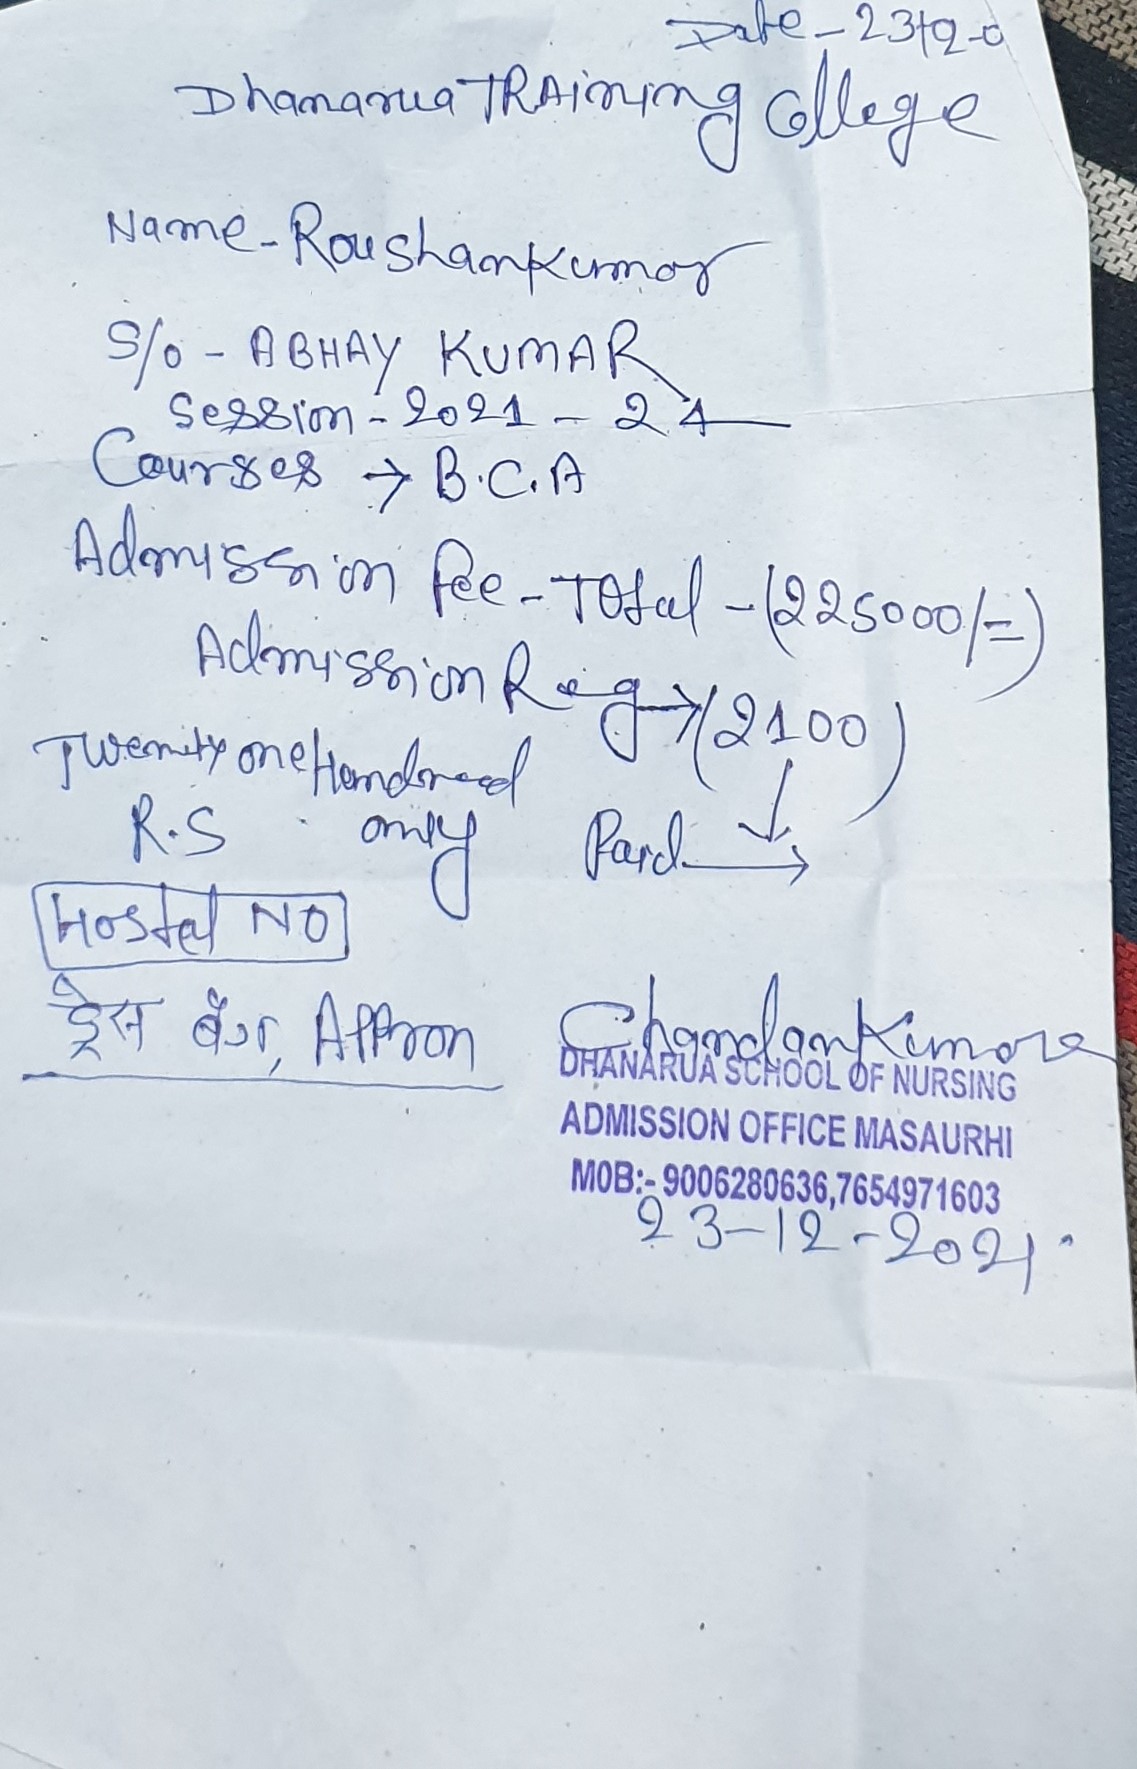 Date - 23/12-0
Dhanarua TRAining College
Name - Roushan Kumar
S/o - ABHAY KUMAR
Session - 2021 - 24
Courses → B.C.A
Admission Fee - Total - (225000/=)
Admission Reg → (2100)
Twenty one Hundread
R.S only Paid →
Hostel NO
ड्रेस बैग, Appron
Chandan Kumar
DHANARUA SCHOOL OF NURSING
ADMISSION OFFICE MASAURHI
MOB:- 9006280636,7654971603
23-12-2021